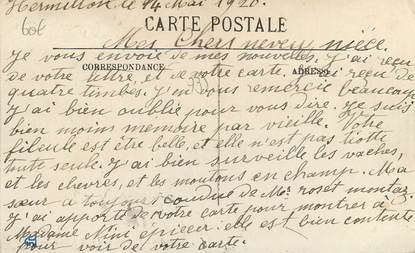 Hermillon le 14 Mai 1920.
606
CARTE POSTALE
Mes Chers neveux nièce.
CORRESPONDANCE
ADRESSE
Je vous envoie de mes nouvelles. J'ai reçu
de votre lettre, et de votre carte, j'ai reçu de
quatre timbes. J'en vous remercie beaucoup
J'ai bien oublié pour vous dire. je suis
bien moins memoire par vieille. Votre
filleule est être belle, et elle n'est pas
toute seule. J'ai bien surveille les vaches,
et les chevres, et les moutons en champ. Ma
sœur a toujours coudue de Mr roset montaz
J'ai apporté de votre carte pour montrer à
Madame Nini epicier. elle est bien contente
pour voir de votre carte.